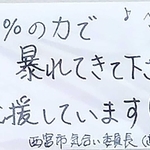 %の力で
暴れてきて下さ
応援しています!
西宮市気合い委員長